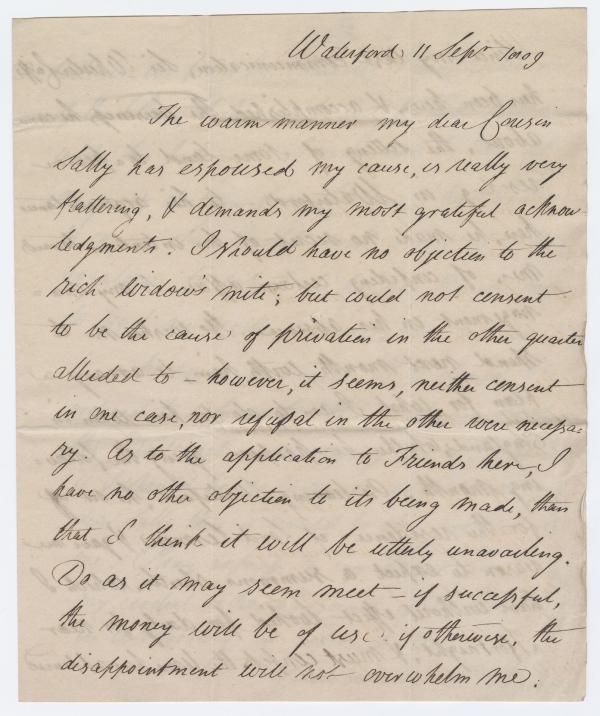 Waterford 11 Sepr 1809
The warm manner my dear Cousin
Sally has espoused my cause, is really very
flattering, & demands my most grateful acknow-
ledgments. I should have no objection to the
rich widow's mite; but could not consent
to be the cause of privation in the other quarter
alluded to – however, it seems, neither consent
in one case, nor refusal in the other were necessa=
ry. As to the application to Friends here, I
have no other objection to its being made, than
that I think it will be utterly unavailing.
Do as it may seem meet – if successful,
the money will be of use: if otherwise, the
disappointment will not overwhelm me.